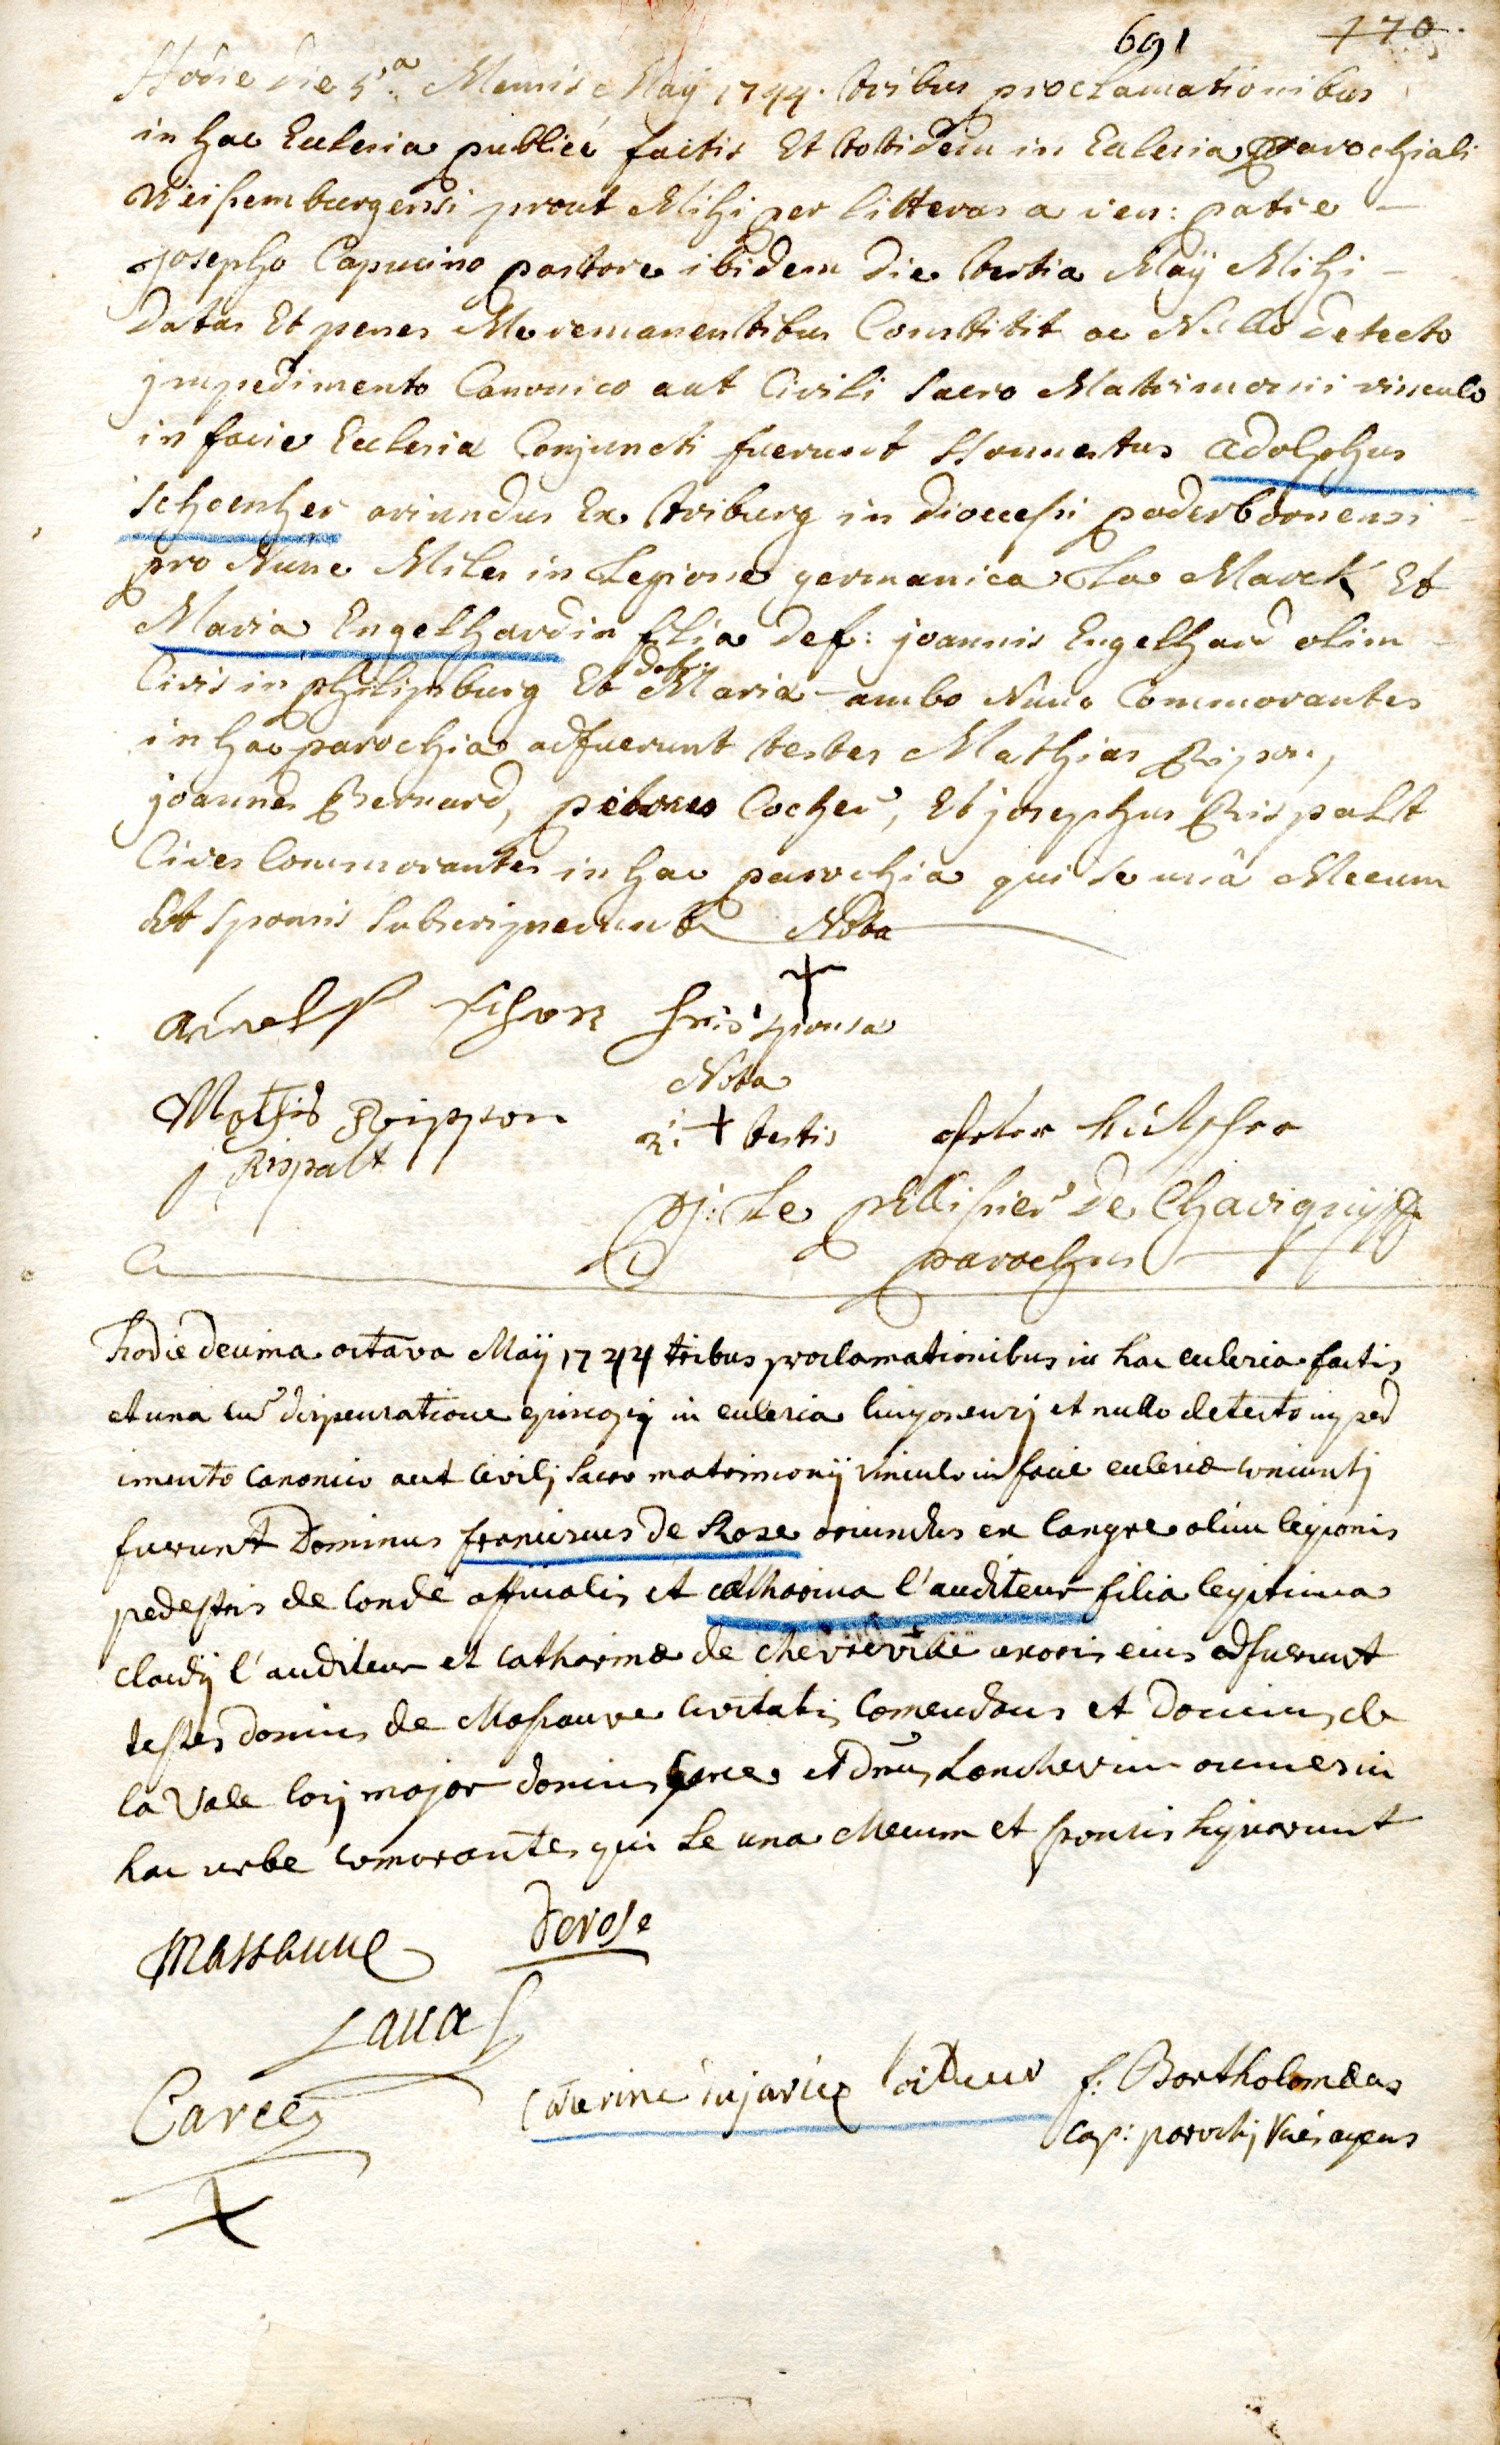 691 170.
Hodie die 5.a Mensis Maÿ 1744. tribus proclamationibus
in hac Ecclesia publice factis Et totidem in Ecclesia parochiali
Weissemburgensi prout Mihi per litteras a ven: patre
josepho Capucino pastore ibidem die tertia Maÿ Mihi
datas Et penes Me remanentibus Constitit ac Nullo detecto
jmpedimento Canonico aut Civili Sacro Matrimonii vinculo
in facie Ecclesiæ Conjuncti fuerunt Honnestus adolphus
schoenher oriundus Ex triburg in dioecesi paderbornensi
pro Nunc Miles in Legione germanica La Marck Et
Maria Engelhardin filia def: joannis Engelhard olim
Civis in philipsburg Et def: Mariæ ambo Nunc Commorantes
in hac parochia adfuerunt testes Mathias Rippon,
joannes Bernard, petrus Cocher, Et josephus Rispalt
Cives Commorantes in hac parochia qui se unâ Mecum
Et sponsis subscripserunt Nota
schon sponsa
Nota
Mathis Rippon 2. + testis Peter
j Rispalt
j: Le Pellissier de Chavigny
parochus
hodie decima octava Maÿ 1744 tribus proclamationibus in hac ecclesia factis
et una cum dispensatione episcopij in ecclesia lingonensj et nullo detecto imped
imento canonico aut civilj sacro matrimonij vinculo in facie ecclesiæ coniunctj
fuerunt Dominus franciscus de Rose oriundus ex Langre olim legionis
pedestris de Condé officialis et catharina l'auditeur filia legitima
claudij l'auditeur et catharinæ de chevreville uxoris eius adfuerunt
testes dominus de Massauve civitatis Comendans et Dominus de
la Vale major dominus et dnus omnes in
hac urbe comorantes qui se una Mecum et sponsis signarunt
Massauve Derose
Laval
Carcé Caterine f: Bartholomæus
cap: parochj vices agens
+